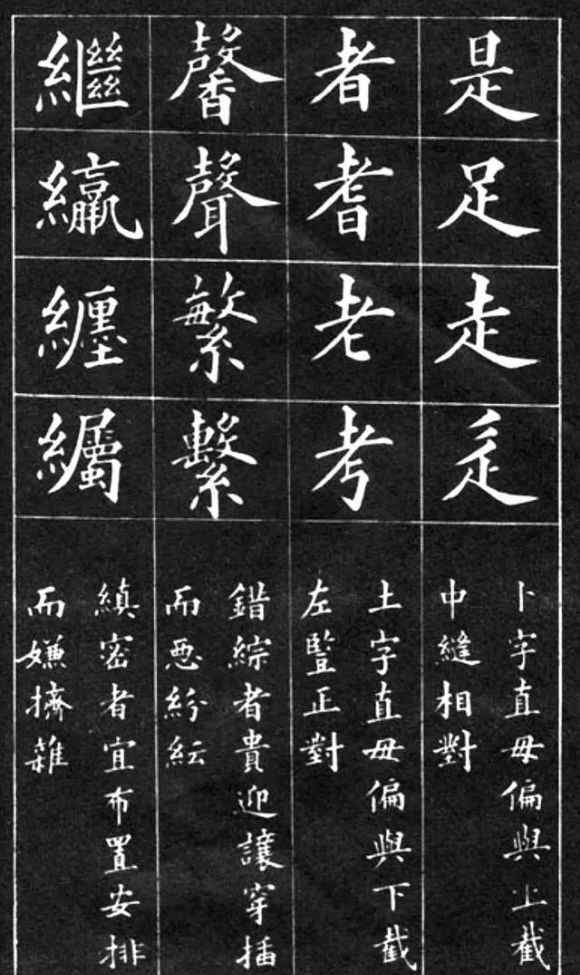 是足走辵
卜字直毋偏與上截
中縫相對
者耆老考
土字直毋偏與下截
左豎正對
馨聲繁繫
錯綜者貴迎讓穿插
而惡紛紜
繼纕纏纗
縝密者宜布置安排
而嫌擠雜